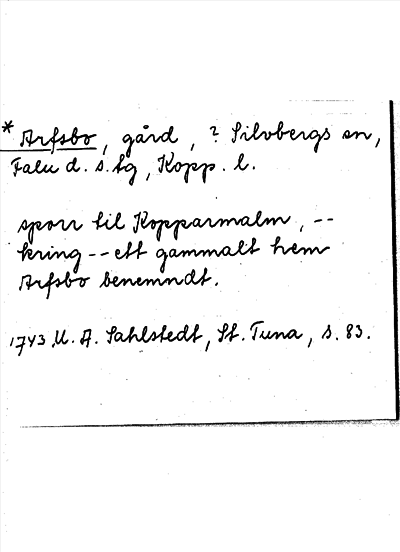 * Arfsbo, gård, ? Silvbergs sn,
Falu d. s. tg, Kopp. l.
sporr til Kopparmalm, --
kring -- ett gammalt hem
Arfsbo benemndt.
1743 M. A. Sahlstedt, St. Tuna, s. 83.